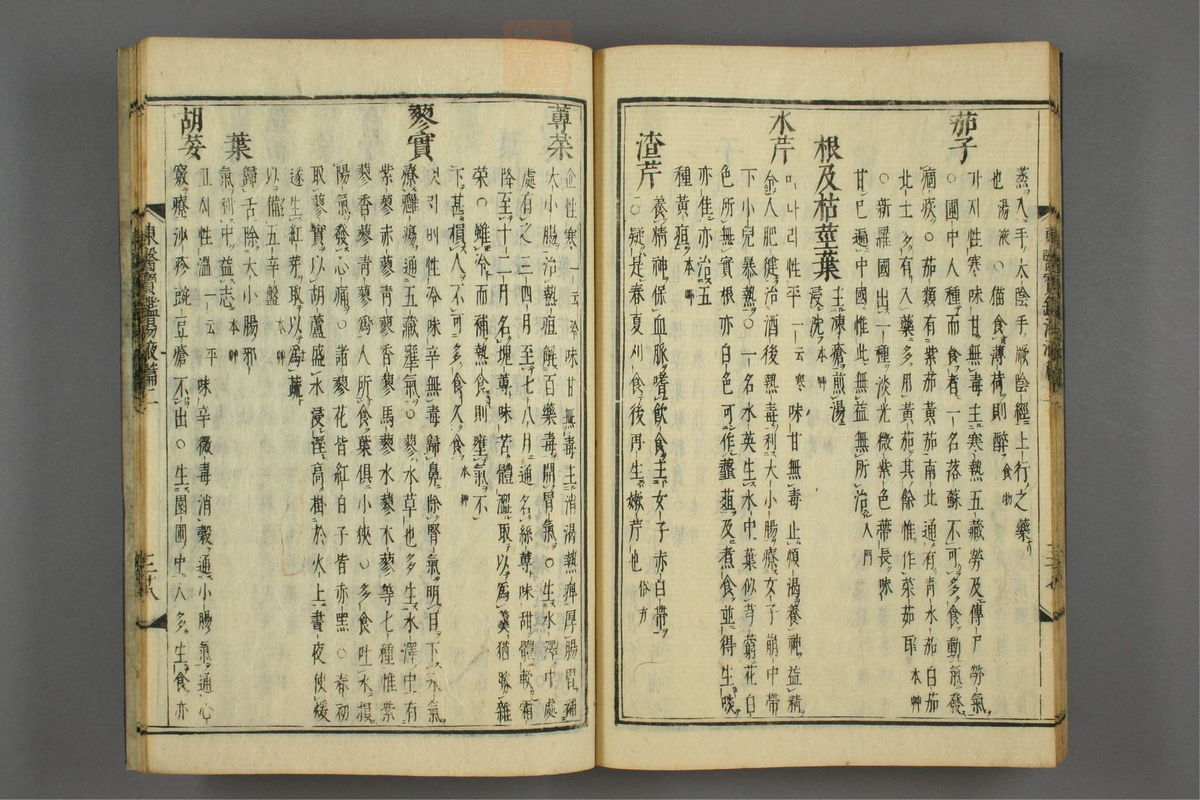 蒸入手太陰手厥陰經上行之藥
也湯液○猫食薄荷則醉食物
茄子
가지性寒味甘無毒主寒熱五藏勞及傳尸勞氣
○園中人種而食者一名落蘇不可多食動氣發
痼疾○茄類有紫茄黃茄南北通有靑水茄白茄
北土多有入藥多用黃茄其餘惟作菜茹耳本草
○新羅國出一種淡光微紫色蔕長味
甘已遍中國惟此無益無所治入門
根及枯莖葉
主凍瘡煎湯
浸洗本草
水芹
미나리性平一云寒味甘無毒止煩渴養神益精
令人肥健治酒後熱毒利大小腸療女子崩中帶
下小兒暴熱○一名水英生水中葉似芎藭花白
色所無實根亦白色可作虀葅及煮食並得生啖
亦佳亦治五
種黃疸本草
渣芹
養精神保血脈嗜飮食主女子赤白帶
○疑是春夏刈食後再生嫩芹也俗方
蓴菜
性寒一云冷味甘無毒主消渴熱痺厚腸胃補
大小腸治熱疸餙百藥毒開胃氣○生水澤中處
處有之三四月至七八月通名絲蓴味甜體軟霜
降至十二月名塊蓴味苦體澁取以爲羹猶勝雜
菜○雖冷而補熱食則壅氣不
下甚損人不可多食久食本草
蓼實
性冷味辛無毒歸鼻除腎氣明目下水氣
療癰瘍通五藏壅氣○蓼水草也多生水澤中有
紫蓼赤蓼靑蓼香蓼馬蓼水蓼木蓼等七種惟紫
蓼香蓼靑蓼爲人所食葉俱小狹○多食吐水損
陽氣發心痛○諸蓼花皆紅白子皆赤黑○春初
取蓼實以胡蘆盛水浸濕高掛於火上晝夜使煖
遂生紅芽取以爲蔬
以備五辛盤本草
葉
歸舌除大小腸邪
氣利中益志本草
胡荽
고싀性溫一云平味辛微毒消穀通小腸氣通心
竅療沙疹豌豆瘡不出○生園圃中人多生食亦
東醫寶鑑湯液篇二
三廿八